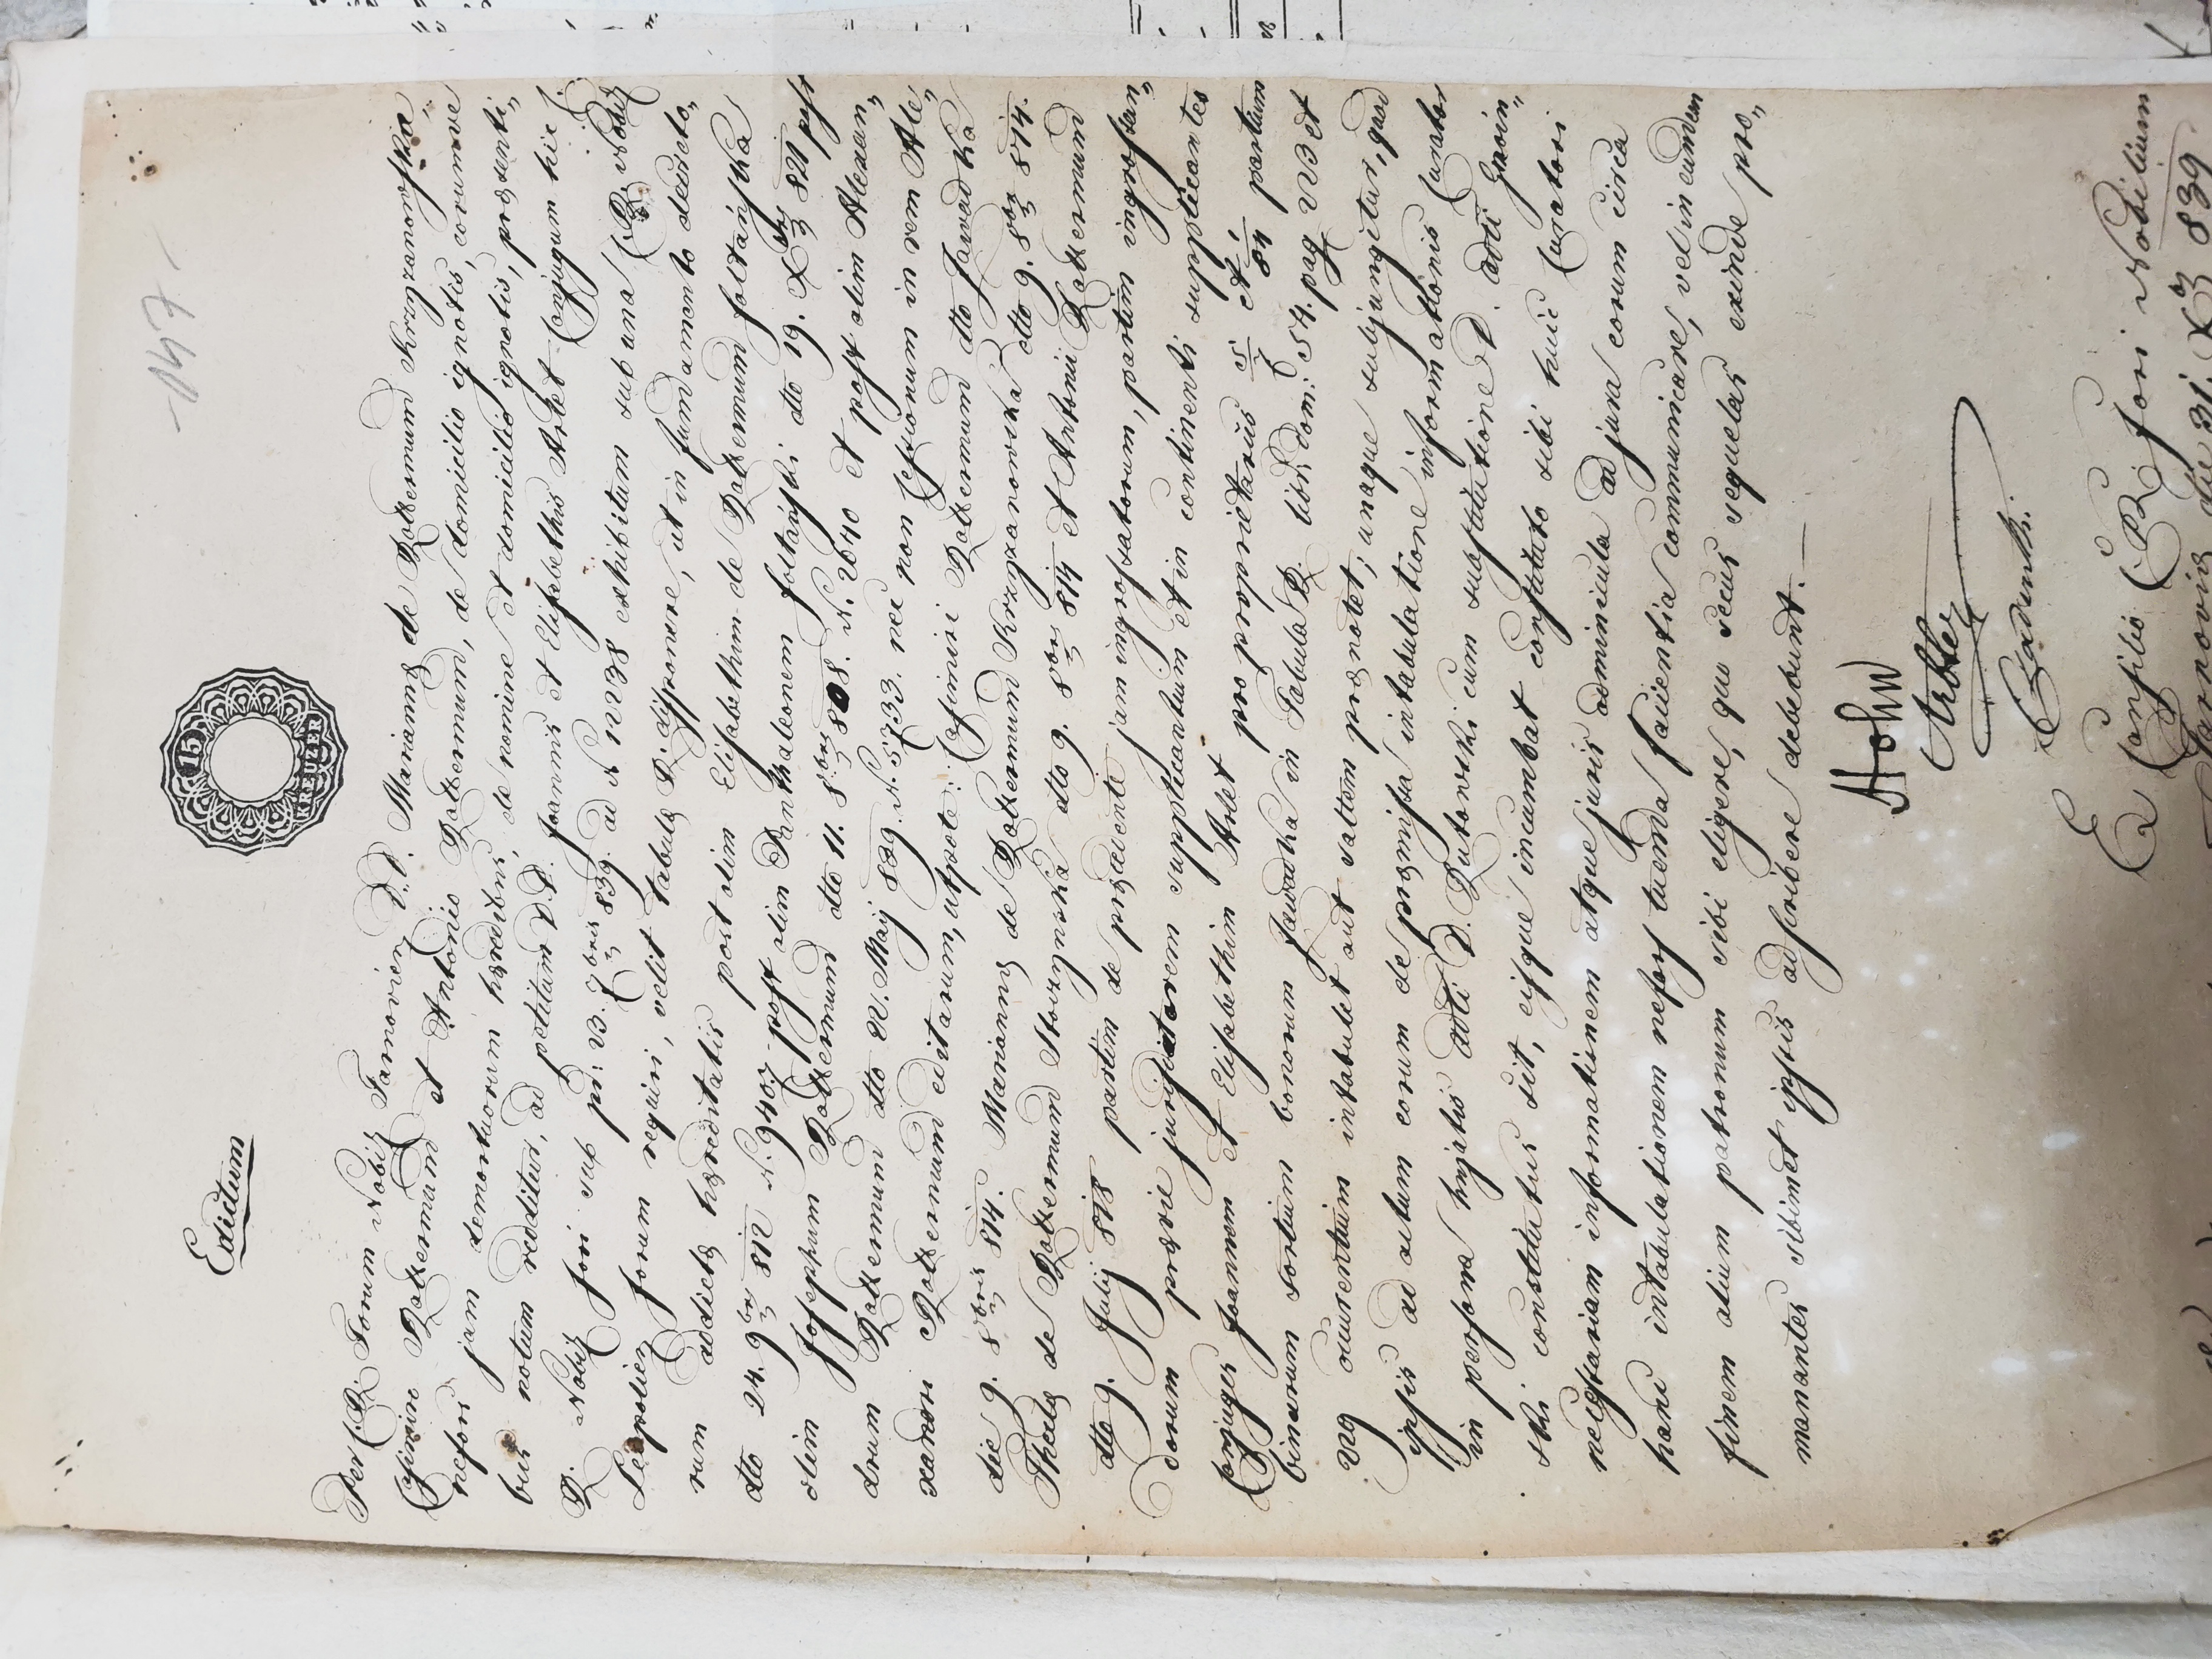 147.
15
KREUZER
Edictum
Per C. R. Forum Nobil. Tarnovien. D.D. Mariannæ de Rottermund Krzyzanowska
Casimiro Rottermund et Antonio Rottermund, de domicilio ignotis, eorumve
nefors jam demortuorum hæredibus, de nomine et domicilio ignotis, præsenti„
bus notum redditur, ad petitum D.D. Joannis et Elisabethis Arlet Conjugum hic
R. Nobil. fori sub pr: 13. 7bris 839. ad N 12238 exhibitum sub una C. R. Nobil.
Leopolien. forum requiri, velit tabulæ R. disponere, ut in fundamento decreto„
rum addictæ hæreditatis post olim Elisabetham de Rottermund Soltańska
dto 24. 9br. 812 N. 9407 post olim Panthaleonem Soltański dto 19. Xbr. 821 post
olim Josephum Rottermund dto 11. 8bris 808. N. 2640 et post olim Alexan„
drum Rottermund dto 22. Maij 829. N. 5733. nec non Cessionum in rem Ale„
xandri Rottermund editarum, utpote: Casimiri Rottermund dto Jawadzka
die 9. 8bris 814. Mariannæ de Rottermund Krzyzanowska dto 9. 8br. 814.
Theclæ de Rottermund Stoczynska dto 9. 8br. 814 et Antonii Rottermund
dto 9. Julij 818 partim de præcedente jam ingrossatorum, partim ingrossan„
dorum prævie juris supplicantium et in continenti supplicantes
Conjuges Joannem et Elisabetham Arlet pro proprietariis 5/7 et 1/84 partium
binarum sortium bonorum Jawadzka in Tabula R. libr. dom: 54. pag 123 et
129 occurentium intabulet aut saltem prænotet; unaque subjungitur, quod
ipsis ad actum eorum de præmissa intabulatione informationis Curator
in persona hujatis Adti D. Rutowski cum substitutione D. Adti Hoin„
ski constitutus sit, eisque incumbat constituto sibi huic Curatori
necessariam informationem atque juris adminicula ad jura eorum circa
hanc intabulationem nefors tuenda facientia communicare, vel in eundem
finem alium patronum sibi eligere, quo secus sequelas exinde pro„
manantes sibimet ipsis adscribere debebunt.—
Arbter
E Consilio C. R. Fori Nobilium
Tarnoviæ die 31. Xbr. 839.